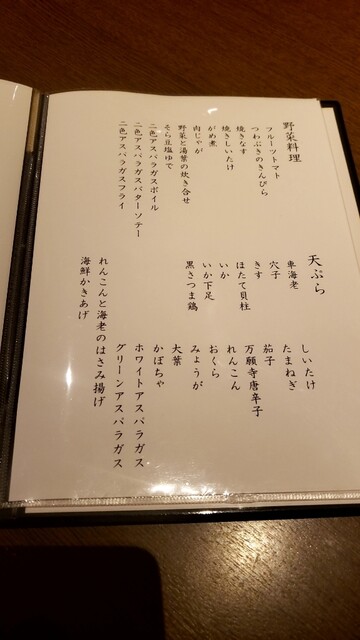 野菜料理
フルーツトマト
つわぶきのきんぴら
焼きなす
焼きしいたけ
がめ煮
肉じゃが
野菜と湯葉の炊き合せ
そら豆塩ゆで
二色アスパラガスボイル
二色アスパラガスバターソテー
二色アスパラガスフライ
天ぷら
車海老
穴子
きす
ほたて貝柱
いか
いか下足
黒さつま鶏
しいたけ
たまねぎ
茄子
万願寺唐辛子
れんこん
おくら
みょうが
大葉
かぼちゃ
ホワイトアスパラガス
グリーンアスパラガス
れんこんと海老のはさみ揚げ
海鮮かきあげ